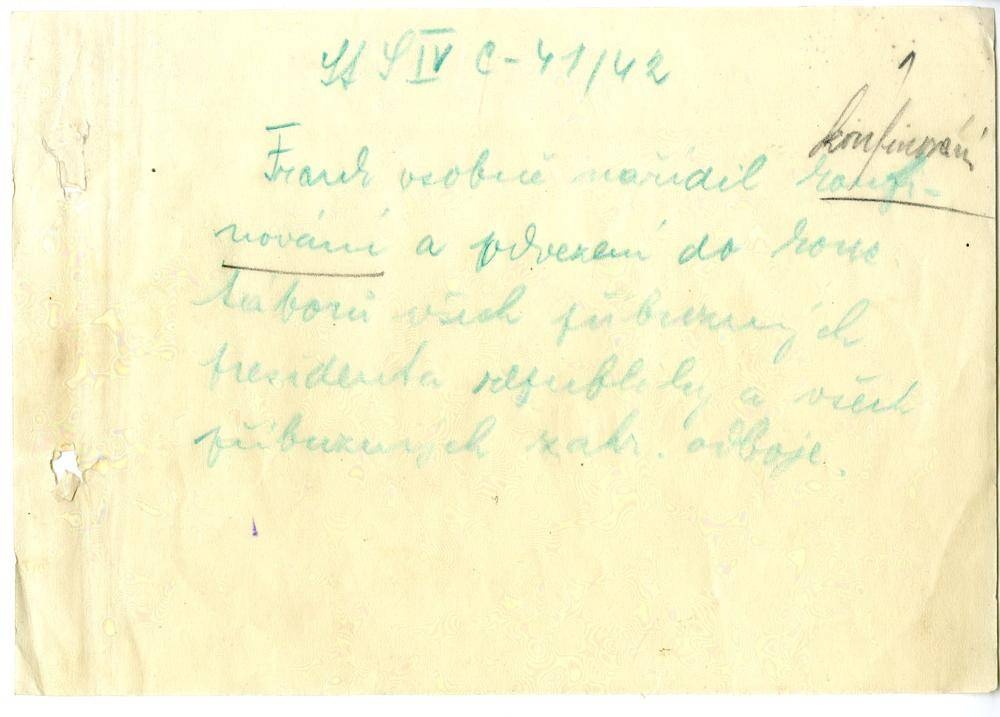 St S IV C-41/42
1
konfinování
Frank osobně nařídil konfi-
nování a odvezení do konc.
táborů všech příbuzných
presidenta republiky a všech
příbuzných zahr. odboje.